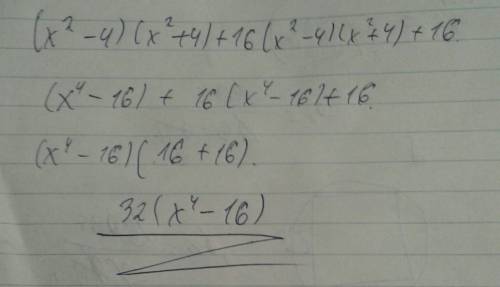 (x² - 4)(x² + 4) + 16(x² - 4)(x² + 4) + 16.
(x⁴ - 16) + 16(x⁴ - 16) + 16.
(x⁴ - 16)(16 + 16).
32(x⁴ - 16)